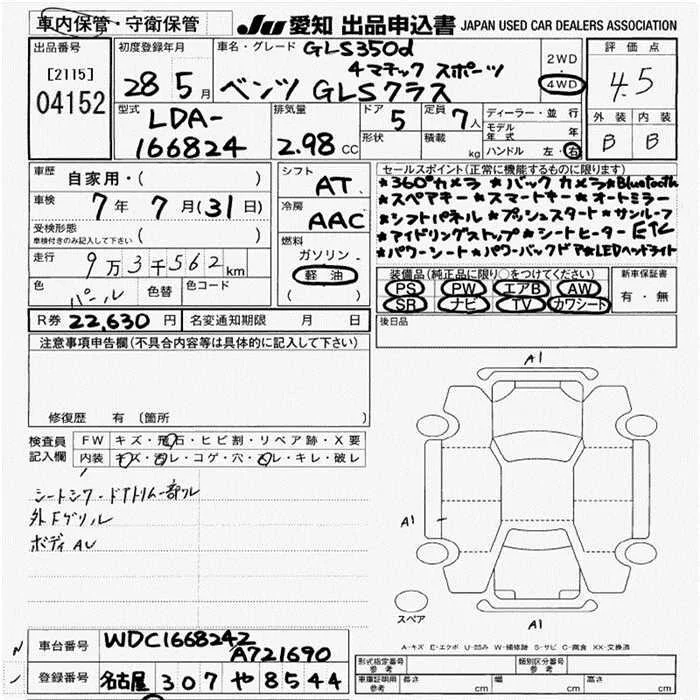 車内保管・守衛保管
JU 愛知 出品申込書 JAPAN USED CAR DEALERS ASSOCIATION
出品番号
[2115]
04152
初度登録年月
28 5月
車名・グレード GLS350d
4マチック スポーツ
ベンツ GLSクラス
2WD
・
4WD
評価点
4.5
外装 内装
B B
型式
LDA-
166824
排気量
2.98 CC
ドア
5
定員
7人
形状
積載
kg
ディーラー・並行
モデル年式 年
ハンドル 左・右
車歴
自家用・( )
車検
7年 7月(31日)
受検形態
車検付きのみ記入して下さい ( )
走行
9万3千562km
色
パール
色替
色コード
シフト
AT
冷房
AAC
燃料
ガソリン・
軽油
( )
セールスポイント(正常に機能するものに限ります)
★360°カメラ ★バックカメラ★Bluetooth
★スペアキー ★スマートキー ★オートミラー
★シフトパネル ★プッシュスタート ★サンルーフ
★アイドリングストップ ★シートヒーター ETC
★パワーシート ★パワーバックドア★LEDヘッドライト
装備品(純正品に限り○をつけてください)
PS PW エアB AW
SR ナビ TV カワシート
新車保証書
有・無
R券 22,630円
名変通知期限 月 日
後日品
注意事項申告欄(不具合内容等は具体的に記入して下さい)
修復歴 有(箇所 )
検査員
記入欄
FW キズ・飛石・ヒビ割・リペア跡・X要
内装 キズ・汚レ・コゲ・穴・スレ・キレ・破レ
シートシワ・ドアトリム一部ル
外Fグリル
ボディAU
A1
A1
A1
スペア
A-キズ E-エクボ U-凹み W-補修跡 S-サビ C-腐食 XX-交換済
車台番号 WDC1668242
A721690
登録番号 名古屋 307 や 8544
形式指定番号
参考
類別区分番号
参考
車庫証明用
参考
長さ cm 幅 cm 高さ cm